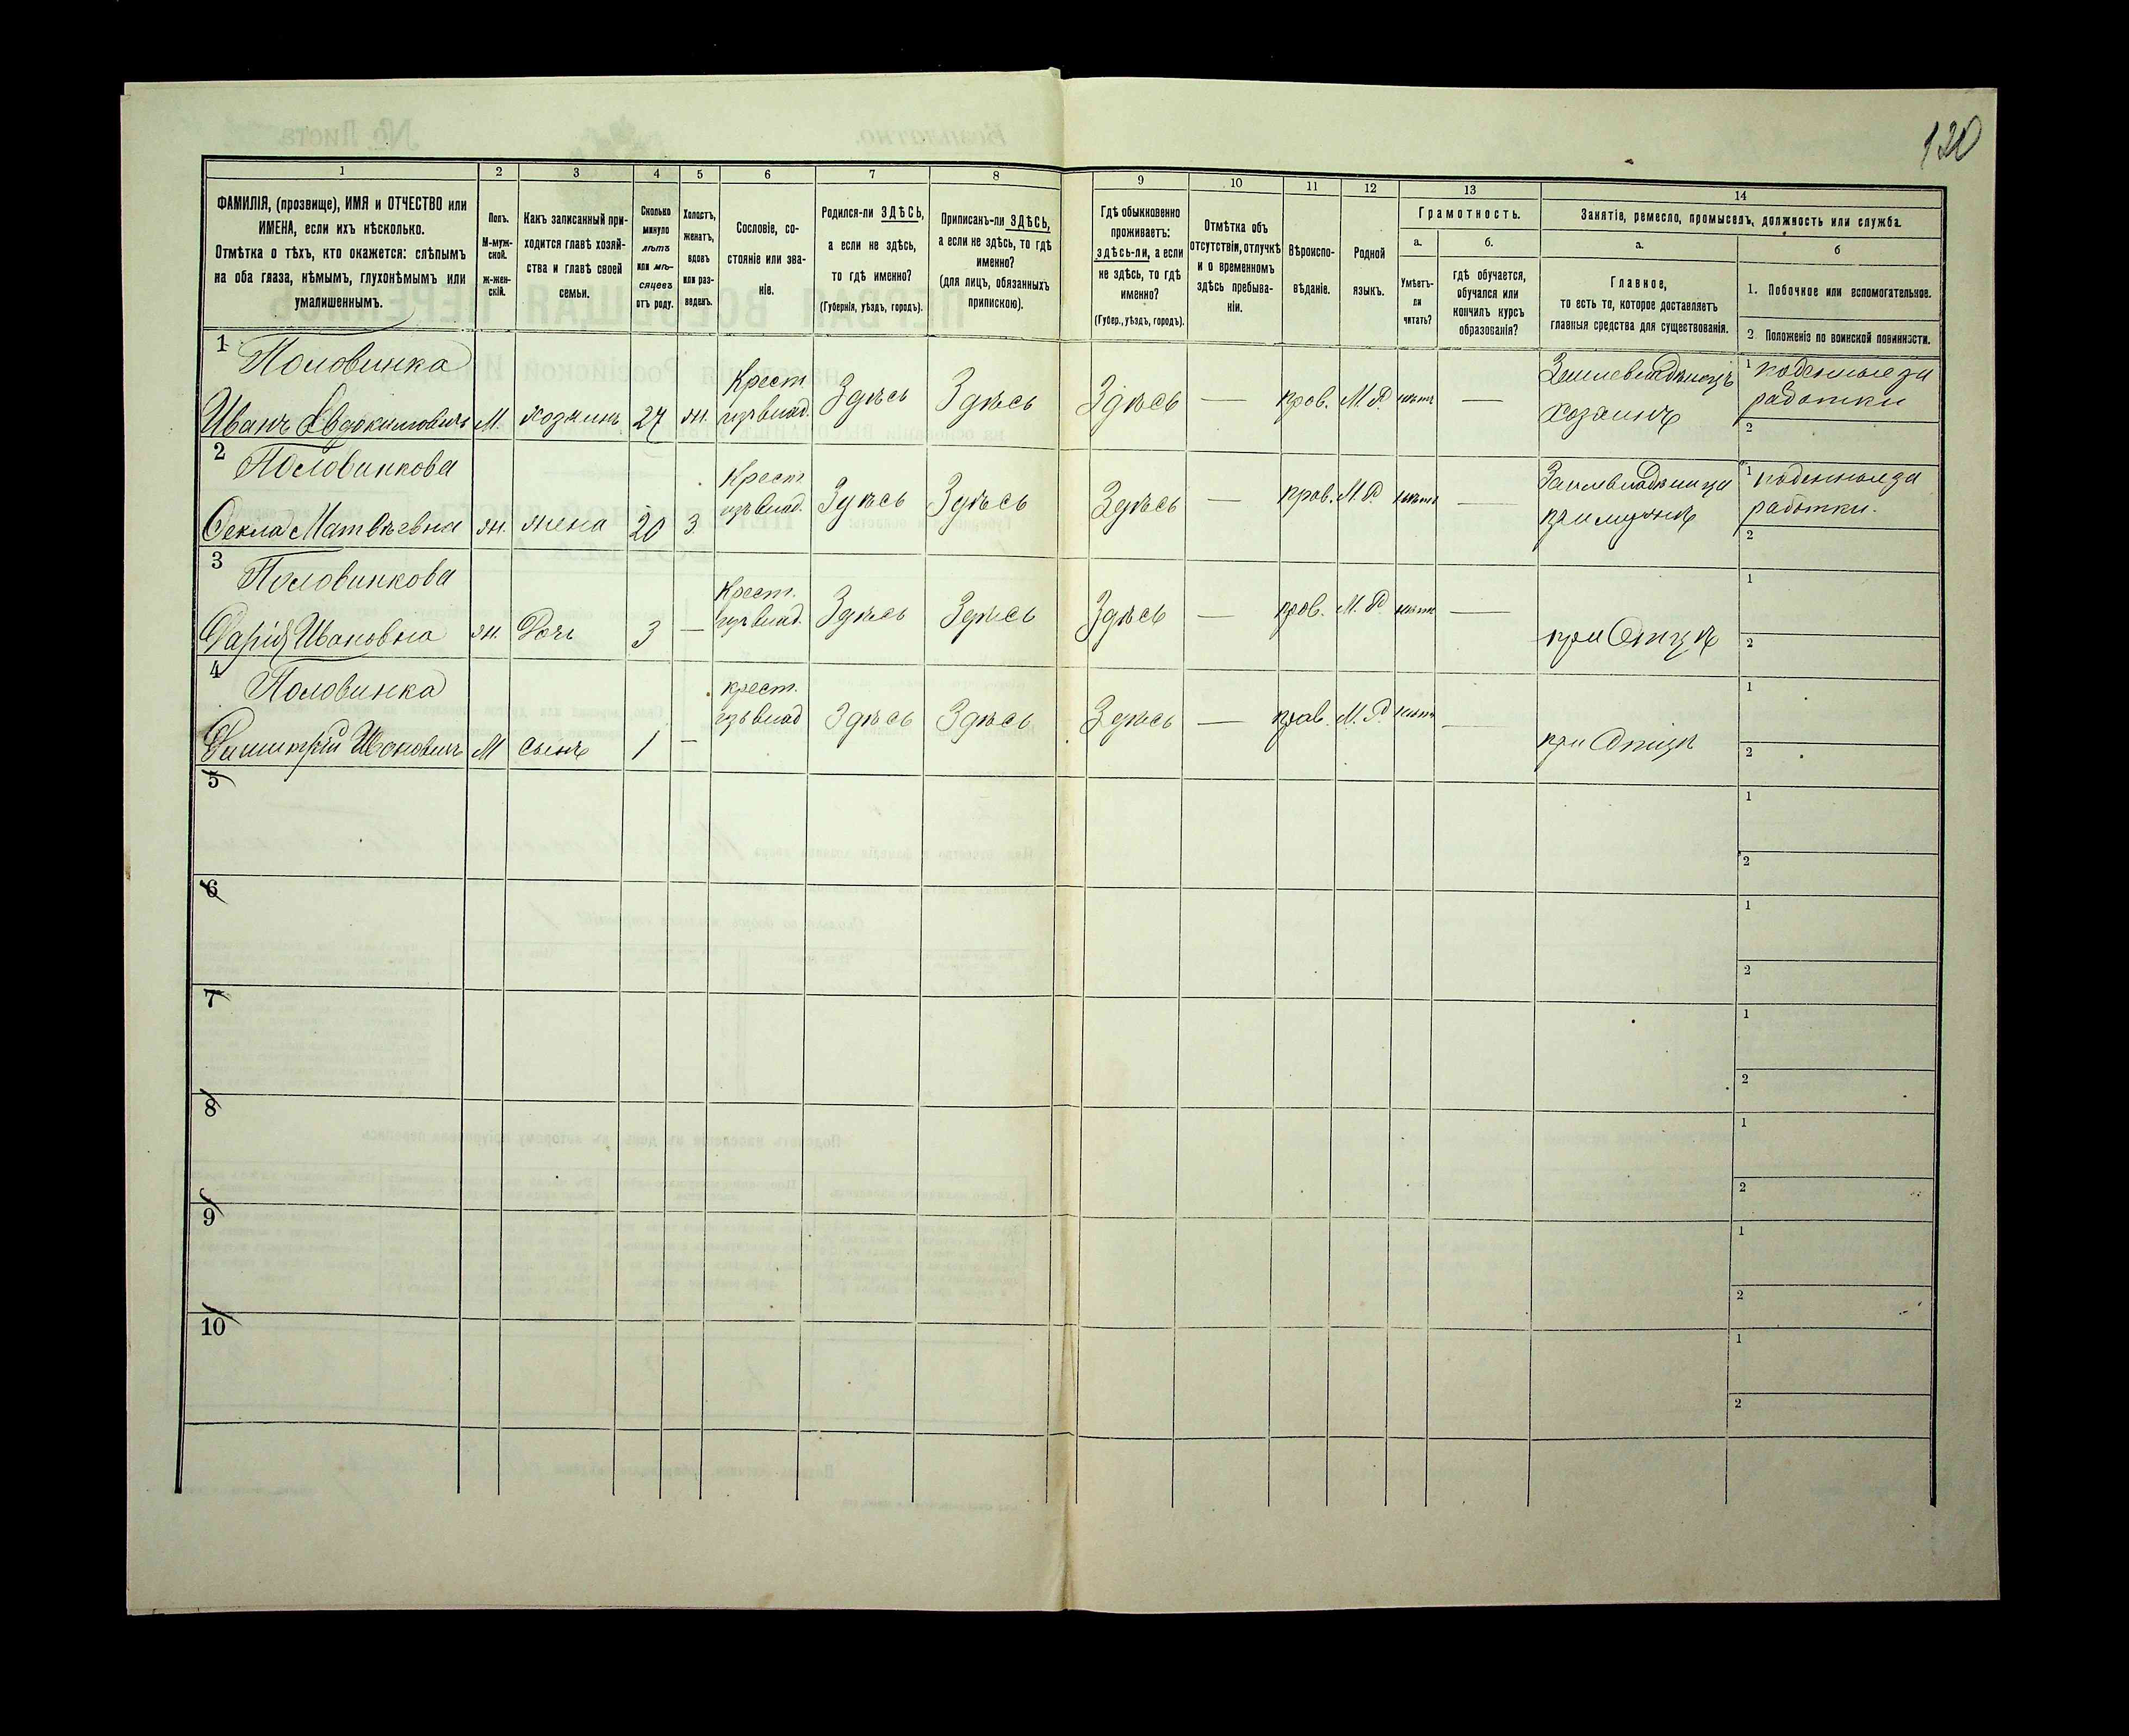 120
1 2 3 4 5 6 7 8 9 10 11 12 13 14
ФАМИЛІЯ, (прозвище), ИМЯ и ОТЧЕСТВО или
ИМЕНА, если ихъ нѣсколько.
Отмѣтка о тѣхъ, кто окажется: слѣпымъ
на оба глаза, нѣмымъ, глухонѣмымъ или
умалишеннымъ.
Полъ.
М-муж-
ской.
ж-жен-
скій.
Какъ записанный при-
ходится главѣ хозяй-
ства и главѣ своей
семьи.
Сколько
минуло
лѣтъ
или мѣ-
сяцевъ
отъ роду.
Холостъ,
женатъ,
вдовъ
или раз-
веденъ.
Сословіе, со-
стояніе или зва-
ніе.
Родился-ли ЗДѢСЬ,
а если не здѣсь,
то гдѣ именно?
(Губернія, уѣздъ, городъ).
Приписанъ-ли ЗДѢСЬ,
а если не здѣсь, то гдѣ
именно?
(для лицъ, обязанныхъ
припискою).
Гдѣ обыкновенно
проживаетъ:
здѣсь-ли, а если
не здѣсь, то гдѣ
именно?
(Губер., уѣздъ, городъ).
Отмѣтка объ
отсутствіи, отлучкѣ
и о временномъ
здѣсь пребыва-
ніи.
Вѣроиспо-
вѣданіе.
Родной
языкъ.
Грамотность.
а.
Умѣетъ-
ли
читать?
б.
гдѣ обучается,
обучался или
кончилъ курсъ
образованія?
Занятіе, ремесло, промыселъ, должность или служба.
а.
Главное,
то есть то, которое доставляетъ
главныя средства для существованія.
б
1. Побочное или вспомогательное.
2 Положеніе по воинской повинности.
1
Половинка
Иванъ Евдокимовичъ
М.
хозяинъ
27
ж.
Крест.
изъ влад.
Здѣсь
Здѣсь
Здѣсь
—
прав.
М. Р.
нѣтъ
—
Землевладѣлецъ
хозяинъ
1 поденные за
работки
2
2
Половинкова
Фекла Матвѣевна
ж.
жена
20
З.
Крест.
изъ влад.
Здѣсь
Здѣсь
Здѣсь
—
прав.
М. Р.
нѣтъ
—
при мужѣ
1 поденные за
работки.
2
3
Половинкова
Дарія Ивановна
ж.
Дочь
3
—
Крест.
изъ влад.
Здѣсь
Здѣсь
Здѣсь
—
прав.
М. Р.
нѣтъ
—
при Отцѣ
1
2
4
Половинка
Димитрій Ивановичъ
М
сынъ
1
—
крест.
изъ влад
Здѣсь
Здѣсь
Здѣсь
—
прав.
М. Р.
нѣтъ
—
при Отцѣ
1
2
5
1
2
6
1
2
7
1
2
8
1
2
9
1
2
10
1
2